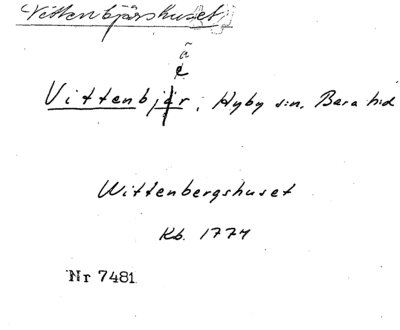 Vittenbjärshuset
ä
e
Vittenbjär, Hyby sn, Bara hd
Wittenbergshuset
Kb. 1774
Nr 7481